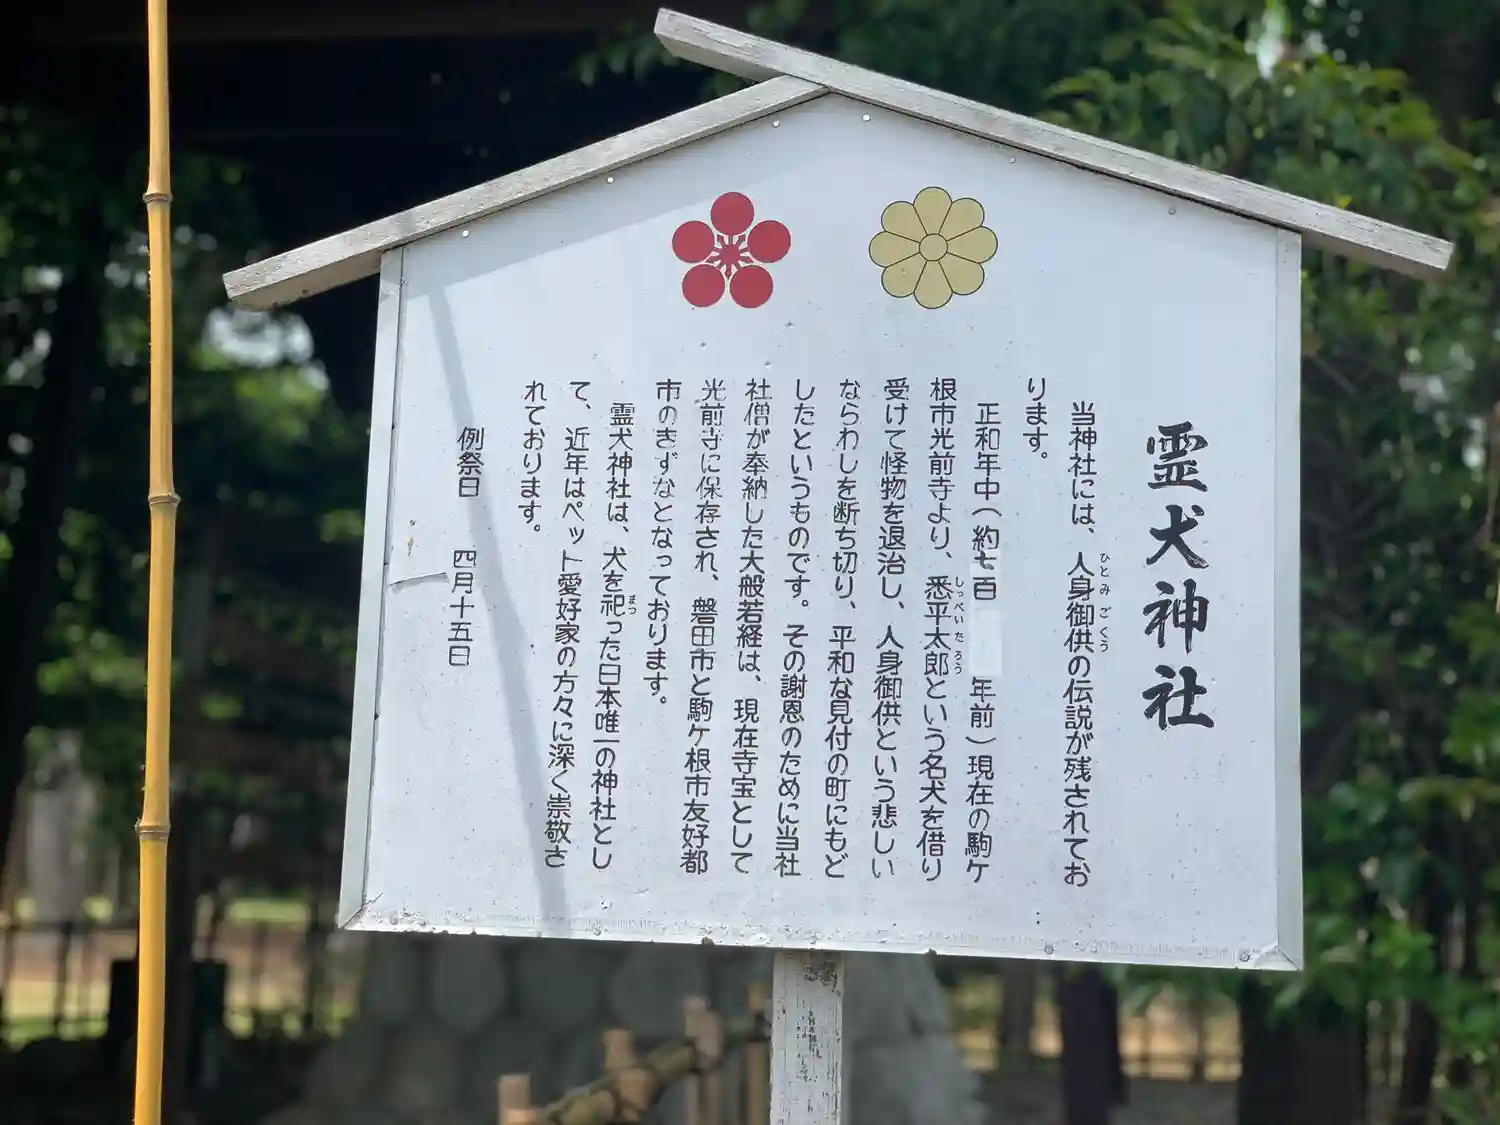 霊犬神社
当神社には、人身御供の伝説が残されてお
ります。
正和年中(約七百 年前)現在の駒ケ
根市光前寺より、悉平太郎という名犬を借り
受けて怪物を退治し、人身御供という悲しい
ならわしを断ち切り、平和な見付の町にもど
したというものです。その謝恩のために当社
社僧が奉納した大般若経は、現在寺宝として
光前寺に保存され、磐田市と駒ケ根市友好都
市のきずなとなっております。
霊犬神社は、犬を祀った日本唯一の神社とし
て、近年はペット愛好家の方々に深く崇敬さ
れております。
例祭日 四月十五日